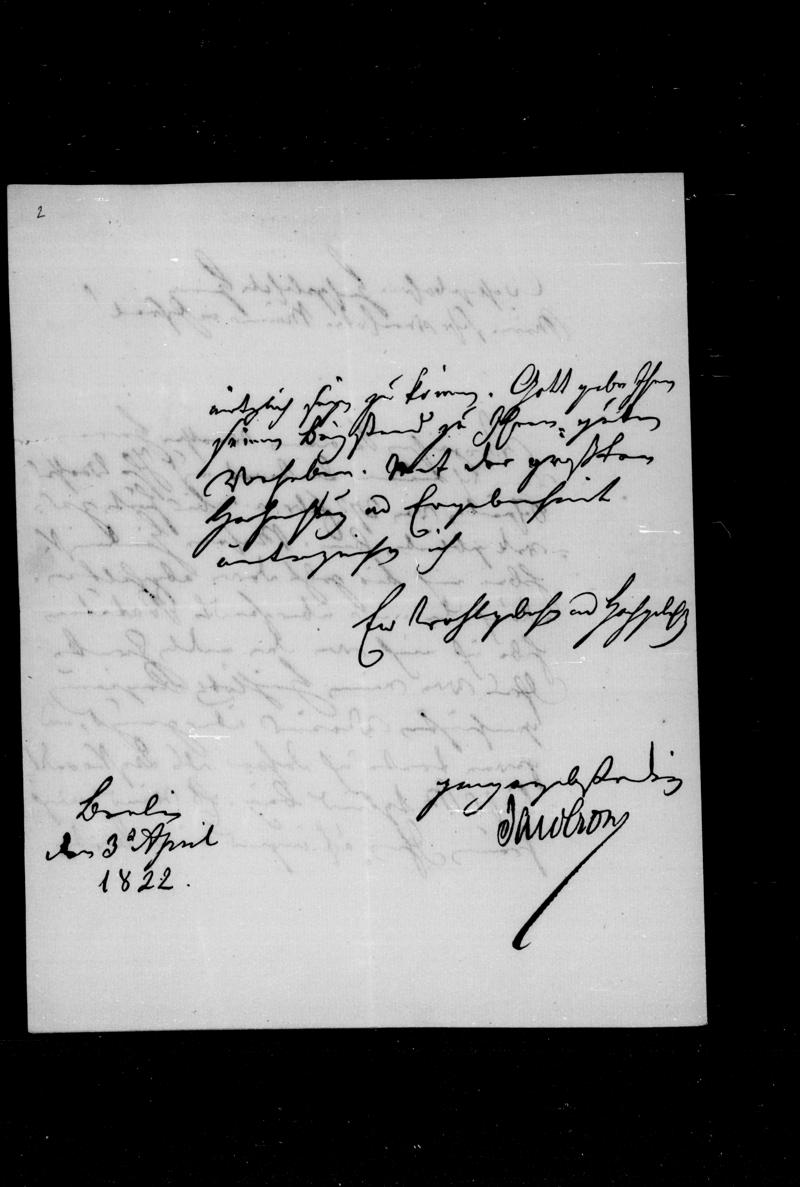 2
nützlich seyn zu können. Gott gebe Ihnen
seinen Beystand zu Ihrem guten
Vorhaben. Mit der größten
Hochachtung und Ergebenheit
unterzeichne ich
Ew Wohlgeb und
ganz ergebenster
Berlin
den 3 April
1822.